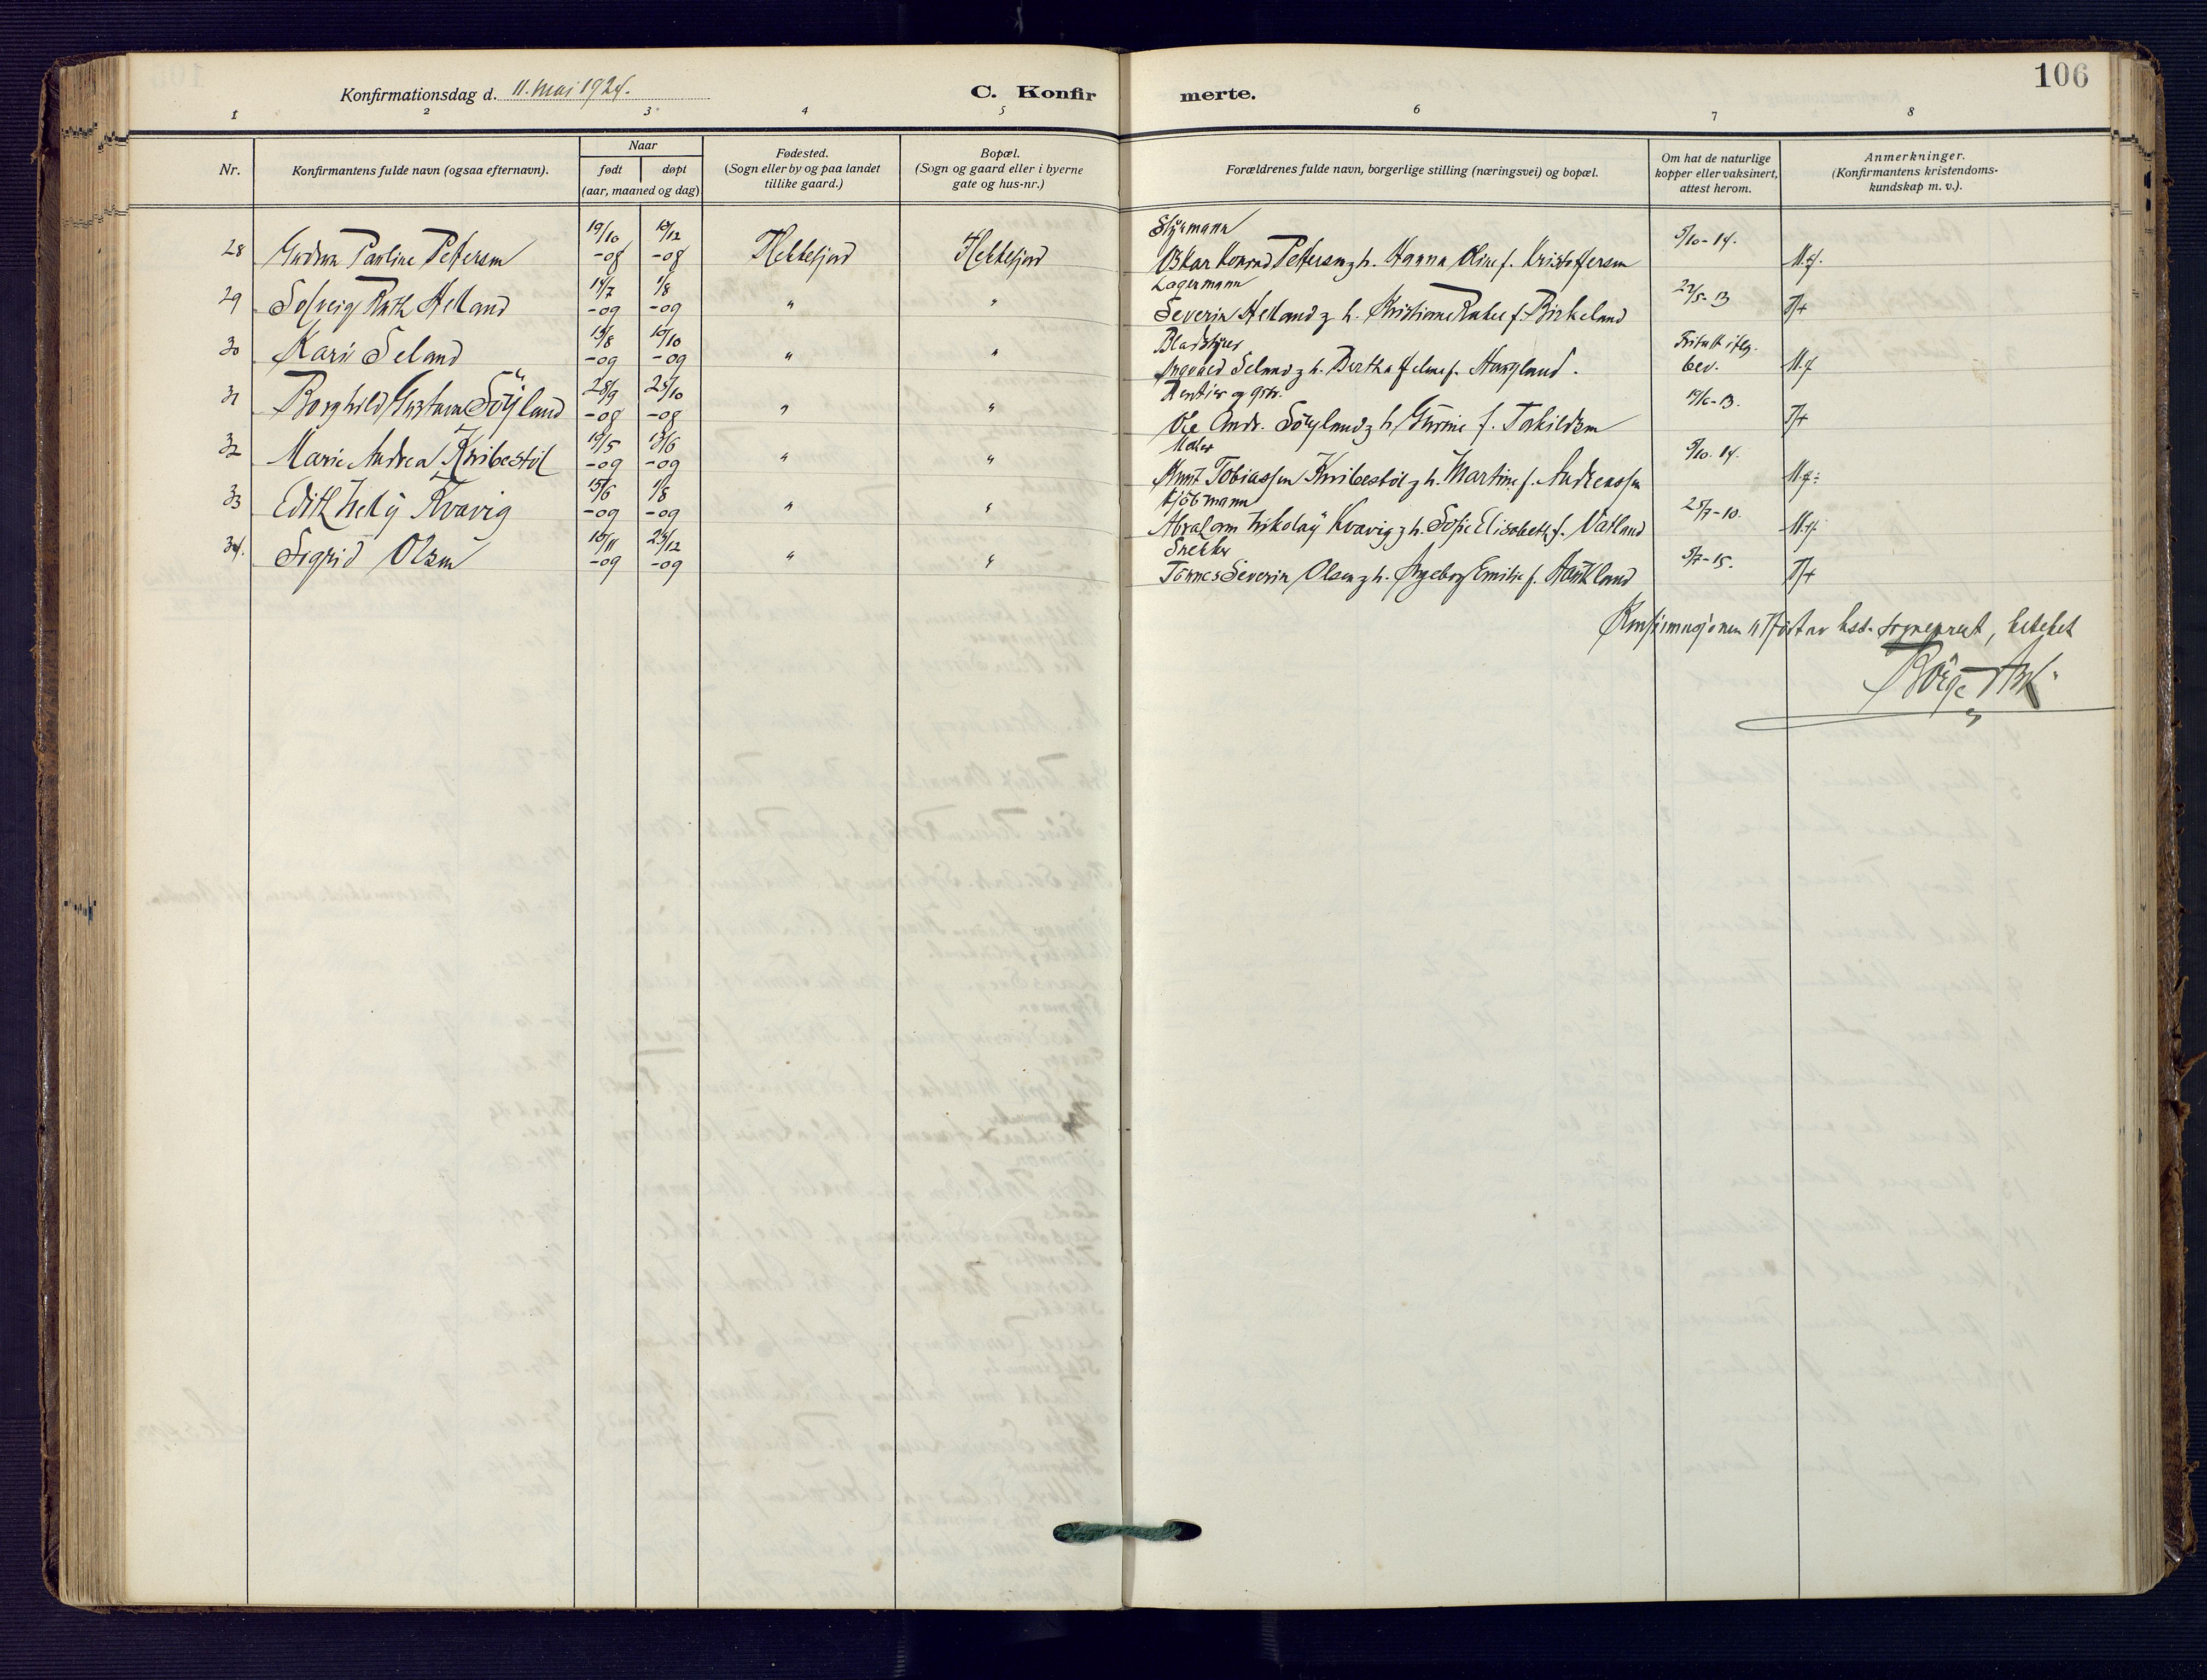 106
Konfirmationsdag d. 11. mai 1924.
C. Konfirmerte.
1 2 3 4 5 6 7 8
Nr.
Konfirmantens fulde navn (ogsaa efternavn).
Naar
født
døpt
(aar, maaned og dag)
Fødested.
(Sogn eller by og paa landet
tillike gaard.)
Bopæl.
(Sogn og gaard eller i byerne
gate og hus-nr.)
Forældrenes fulde navn, borgerlige stilling (næringsvei) og bopæl.
Om hat de naturlige
kopper eller vaksinert,
attest herom.
Anmerkninger.
(Konfirmantens kristendoms-
kundskap m. v.).
Styrmann
28 Gudrun Pauline Pettersen 19/10 -08 /12 -08 Flekkefjord Flekkefjord Oskar Konrad Pettersen g h. Hanna Oline f. Kristoffersen 5/10-14. M.g.
Lagermann
29 Solveig Ruth Helland 14/7 -09 /8 -09 " " Severin Helland g h. Kristiane f. Birkeland 5-13 T+
Bladstyrer
30 Kari Seland /8 -09 10/10 -09 " " Seland g h. Bertha f. Haugland. Fritatt iflg. bev. M.g
Rentier og
31 Borghild Gustava Söyland 28/9 -08 25/10 -08 " " Ole Andr. Söyland g h. Gurine f. Torkildsen 6-13. T+
Maler
32 Marie Andrea Kvibestöl 19/5 -09 13/6 -09 " " Knut Tobiassen Kvibestöl g h. Martine f. Andreassen 5/10-14. M.g.
Kjöbmann
33 Edith Nelly Kvavig 15/6 -09 1/8 -09 " " Abraham Nikolay Kvavig g h. Sofie Elisabeth f. Vatland 25/7-10. M.g.
Snekker
34. Sigrid Olsen /11 -09 /12 -09 " " Tönnes Severin Olsen g h. Ingeborg Emilie f. Haukland 5/7-15. T+
Konfirmasjonen av kst. sogneprest,
Börge